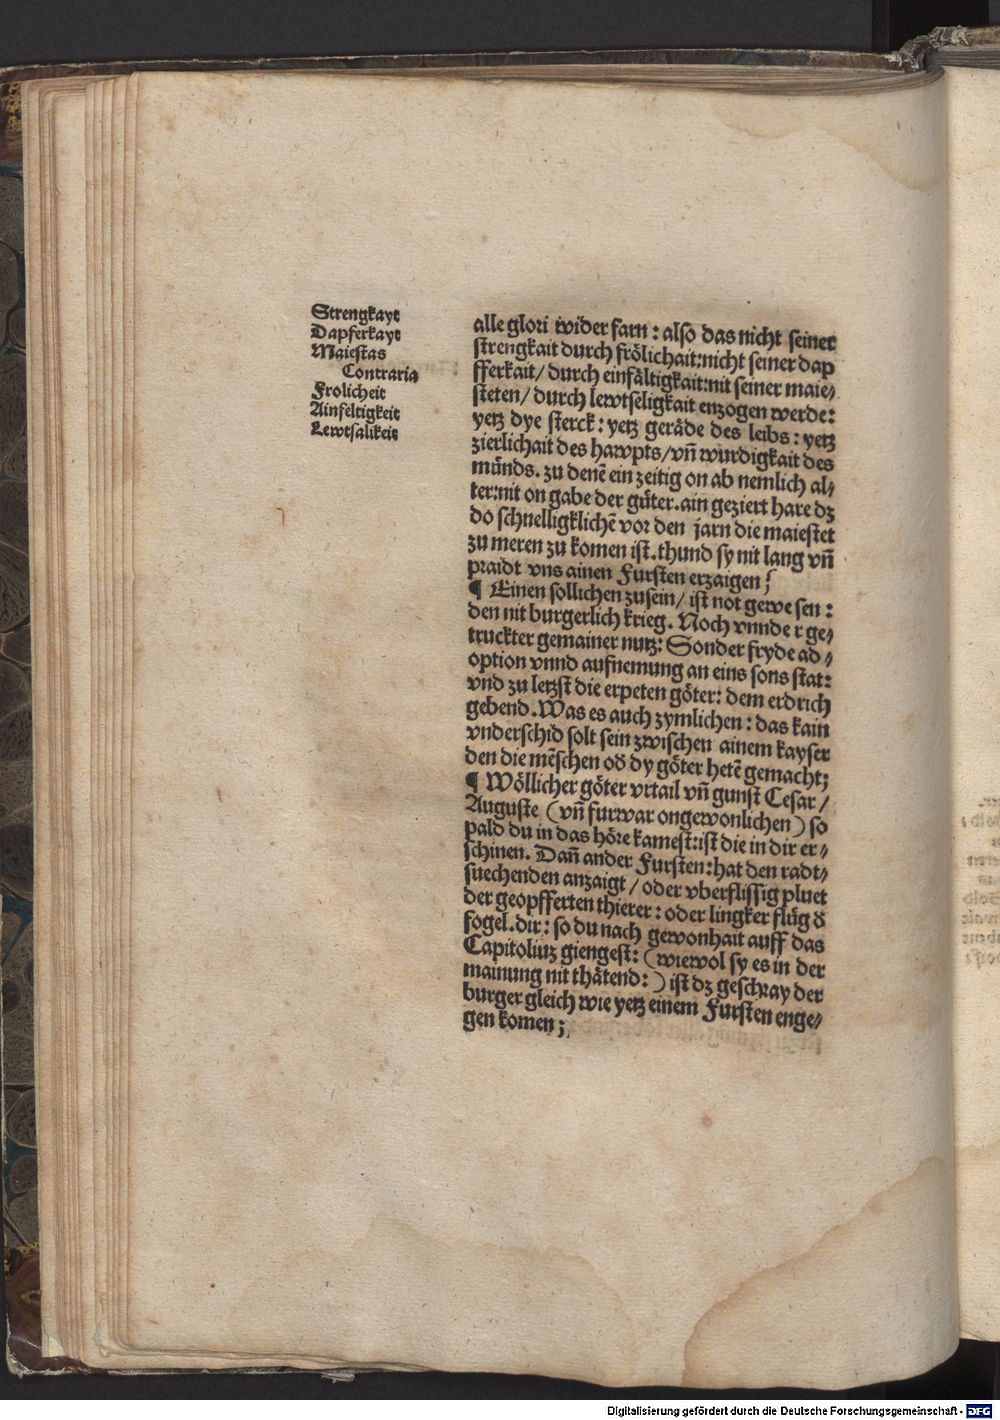 Strengkayt
Dapferkayt
Maiestas
Contraria
Frolicheit
Ainfeltigkeit
Lewtsalikeit
alle glori wider farn : also das nicht seiner
strengkait durch frölichait:nicht seiner dap
fferkait/ durch einfältigkait:nit seiner maie⸗
steten/ durch lewtseligkait enzogen werde:
yetz dye sterck : yetz geräde des leibs : yetz
zierlichait des hawpts/vñ wurdigkait des
münds. zu denē ein zeitig on ab nemlich al⸗
ter:nit on gabe der güter.ain geziert hare dz
do schnelligklichē vor den jarn die maiestet
zu meren zu komen ist.thund sy nit lang vñ
praidt vns ainen Fursten erzaigen?
¶ Einen sollichen zusein/ ist not gewe sen :
den nit burgerlich krieg. Noch vnnde r ge⸗
truckter gemainer nutz: Sonder fryde ad⸗
option vnnd aufnemung an eins sons stat:
vnd zu letzst die erpeten göter: dem erdrich
gebend.Was es auch zymlichen : das kain
vnderschid solt sein zwischen ainem kayser
den die mēschen oď dy göter hetē gemacht;
¶ Wöllicher göter vrtail vñ gunst Cesar /
Auguste (vñ furwar ongewonlichen) so
pald du in das höre kamest:ist die in dir er⸗
schinen. Dañ ander Fursten:hat den radt⸗
suechenden anzaigt / oder vberflissig pluet
der geopfferten thierer : oder lingker flüg ď
fogel.dir: so du nach gewonhait auff das
Capitoliuz giengest: (wiewol sy es in der
mainung nit thätend: ) ist dz geschray der
burger gleich wie yetz einem Fursten enge⸗
gen komen ;
Digitalisierung gefördert durch die Deutsche Forschungsgemeinschaft - DFG